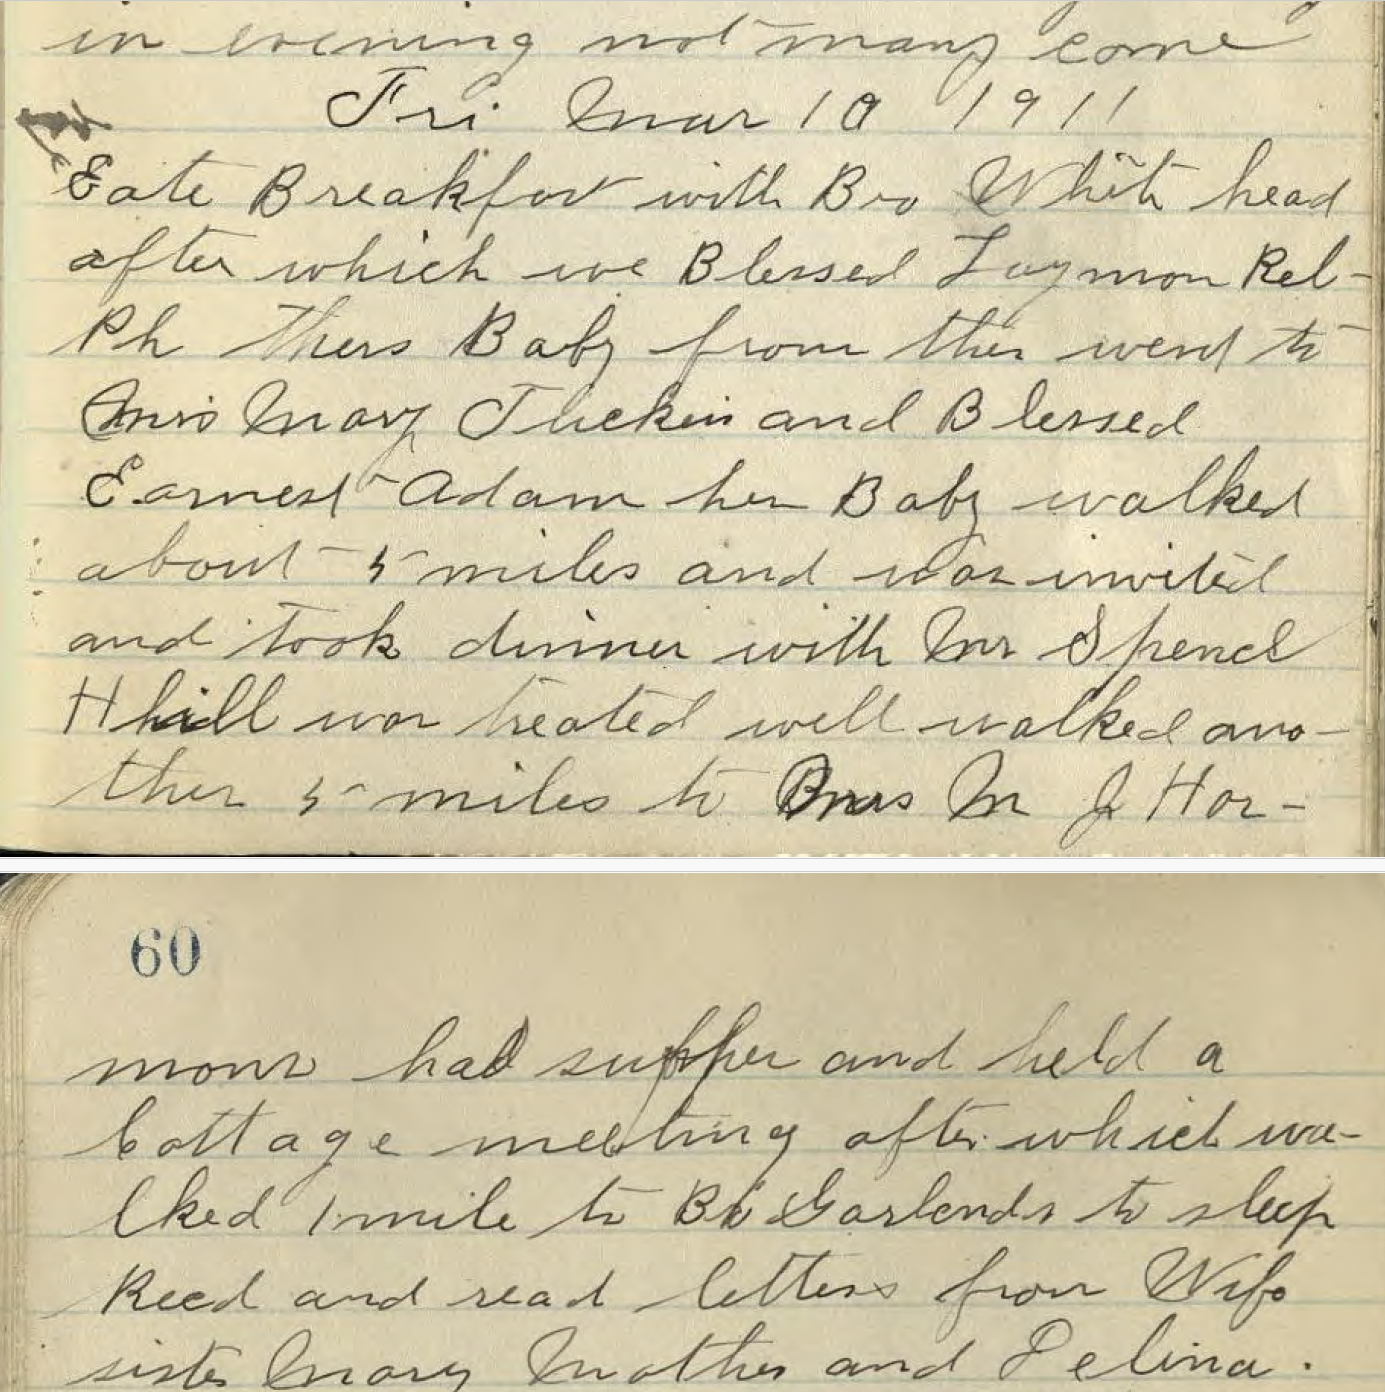 in evening not many come
Fri Mar 10 1911
Eate Breakfast with Bro White head
after which we Blessed Laymon Rel-
Ph thers Baby from ther went to
Mrs Mary Tucken and Blessed
Earnest Adam her Baby walked
about 5 miles and was invited
and took dinner with Mr Spence
Hhill was treated well walked ano-
ther 5 miles to Mrs M J Har-
60
mons had supper and held a
Cottage meeting after which wa-
lked 1 mile to Bro Garlends to sleep
Recd and read letters from Wife
sister Mary Mother and Pelina.